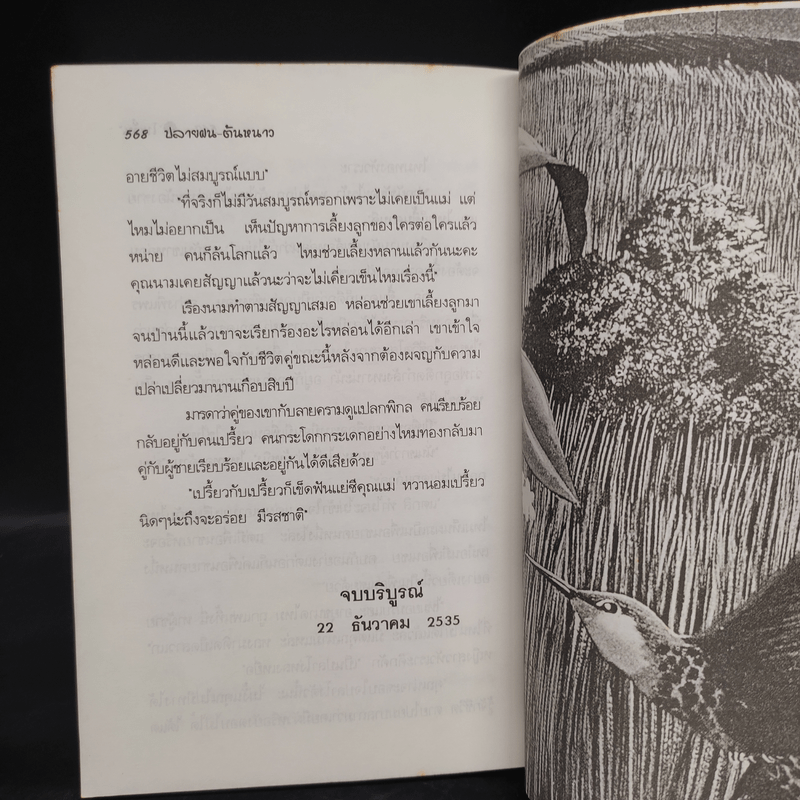 568 ปลายฝน-ต้นหนาว
อายชีวิตไม่สมบูรณ์แบบ"
"ที่จริงก็ไม่มีวันสมบูรณ์หรอกเพราะไม่เคยเป็นแม่ แต่
ไหมไม่อยากเป็น เห็นปัญหาการเลี้ยงลูกของใครต่อใครแล้ว
หน่าย คนก็ล้นโลกแล้ว ไหมช่วยเลี้ยงหลานแล้วกันนะคะ
คุณนามเคยสัญญาแล้วนะว่าจะไม่เคี่ยวเข็นไหมเรื่องนี้"
เรืองนามทำตามสัญญาเสมอ หล่อนช่วยเขาเลี้ยงลูกมา
จนป่านนี้แล้วเขาจะเรียกร้องอะไรหล่อนได้อีกเล่า เขาเข้าใจ
หล่อนดีและพอใจกับชีวิตคู่ขณะนี้หลังจากต้องผจญกับความ
เปล่าเปลี่ยวมานานเกือบสิบปี
มารดาว่าคู่ของเขากับลายครามดูแปลกพิกล คนเรียบร้อย
กลับอยู่กับคนเปรี้ยว คนกระโดกกระเดกอย่างไหมทองกลับมา
คู่กับผู้ชายเรียบร้อยและอยู่กันได้ดีเสียด้วย
"เปรี้ยวกับเปรี้ยวก็เข็ดฟันแย่ซีคุณแม่ หวานอมเปรี้ยว
นิดๆน่ะถึงจะอร่อย มีรสชาติ"
จบบริบูรณ์
22 ธันวาคม 2535